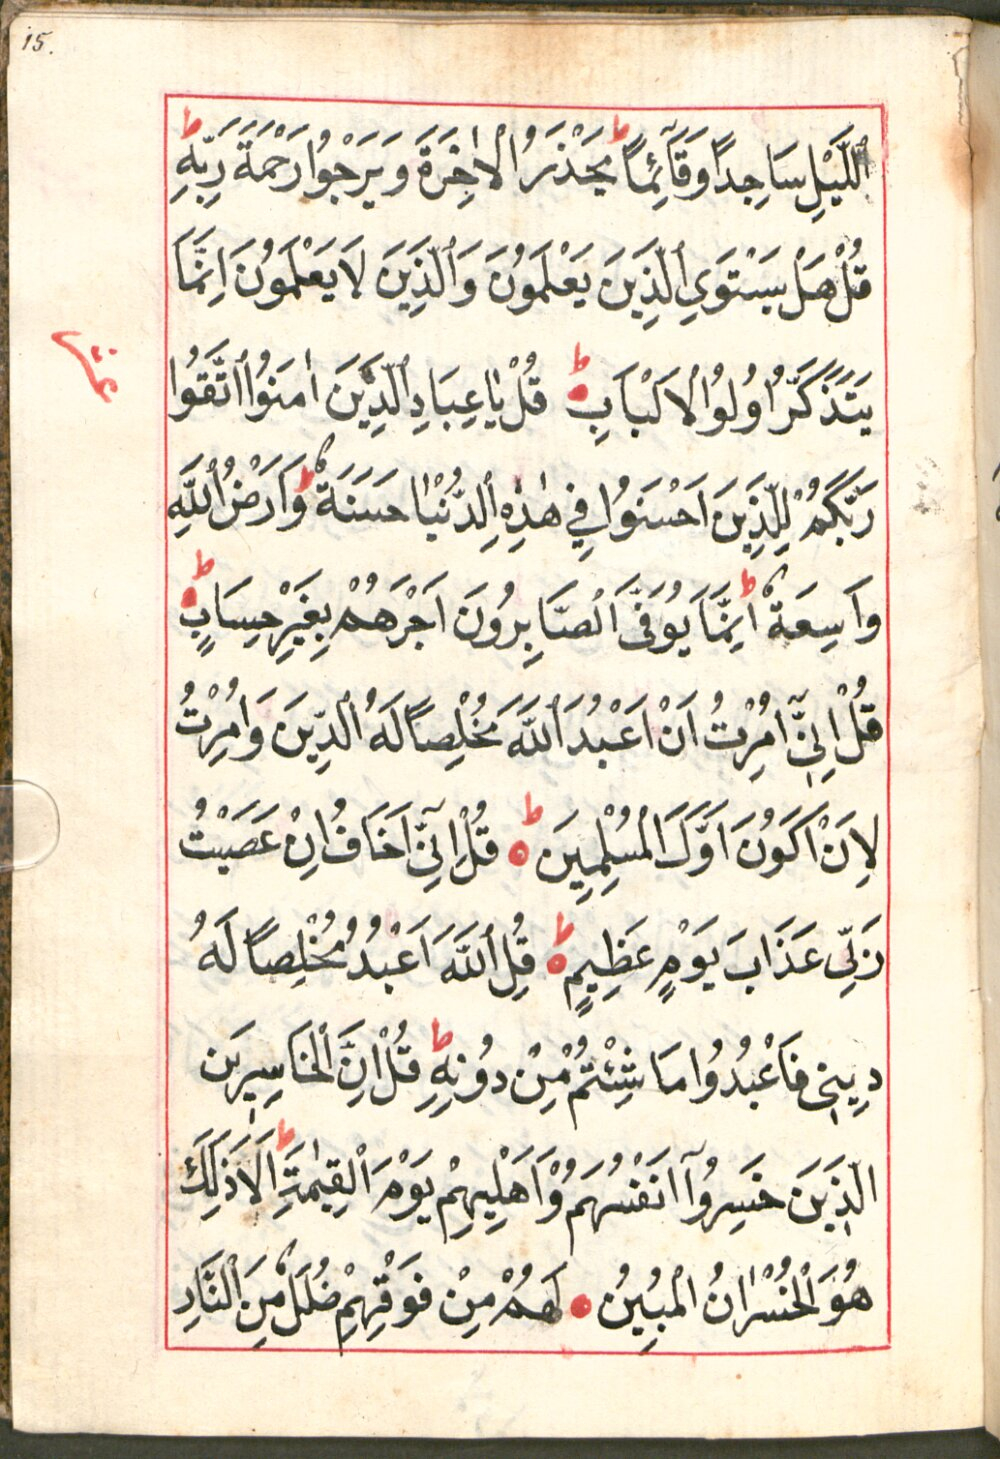 15.
ط ط
اَللَّيْلِ سَاجِداً وَقَآئِماً يَحْذَرُ الْاٰخِرَةَ وَيَرْجُوا رَحْمَةَ رَبِّهِ
قُلْ هَلْ يَسْتَوِي الَّذِينَ يَعْلَمُونَ وَالَّذِينَ لَا يَعْلَمُونَ اِنَّمَا
يَتَذَكَّرُ اُولُوا الْاَلْبَابِ ط قُلْ يَاعِبَادِ الَّذِينَ اٰمَنُوا اتَّقُوا
رَبَّكُمْ لِلَّذِينَ اَحْسَنُوا فِي هٰذِهِ الدُّنْيَا حَسَنَةٌ ط وَاَرْضُ اللَّهِ
وَاسِعَةٌ ط اِنَّمَا يُوَفَّى الصَّابِرُونَ اَجْرَهُمْ بِغَيْرِ حِسَابٍ ط
قُلْ اِنِّيٓ اُمِرْتُ اَنْ اَعْبُدَ اللَّهَ مُخْلِصاً لَهُ الدِّينَ وَاُمِرْتُ
لِاَنْ اَكُونَ اَوَّلَ الْمُسْلِمِينَ ط قُلْ اِنِّيٓ اَخَافُ اِنْ عَصَيْتُ
رَبِّي عَذَابَ يَوْمٍ عَظِيمٍ ط قُلِ اللَّهَ اَعْبُدُ مُخْلِصاً لَهُ
دِينِي فَاعْبُدُوا مَا شِئْتُمْ مِنْ دُونِهِ ط قُلْ اِنَّ الْخَاسِرِينَ
الَّذِينَ خَسِرُوآ اَنْفُسَهُمْ وَاَهْلِيهِمْ يَوْمَ الْقِيٰمَةِ ط اَلَا ذَلِكَ
هُوَ الْخُسْرَانُ الْمُبِينُ لَهُمْ مِنْ فَوْقِهِمْ ظُلَلٌ مِنَ النَّارِ